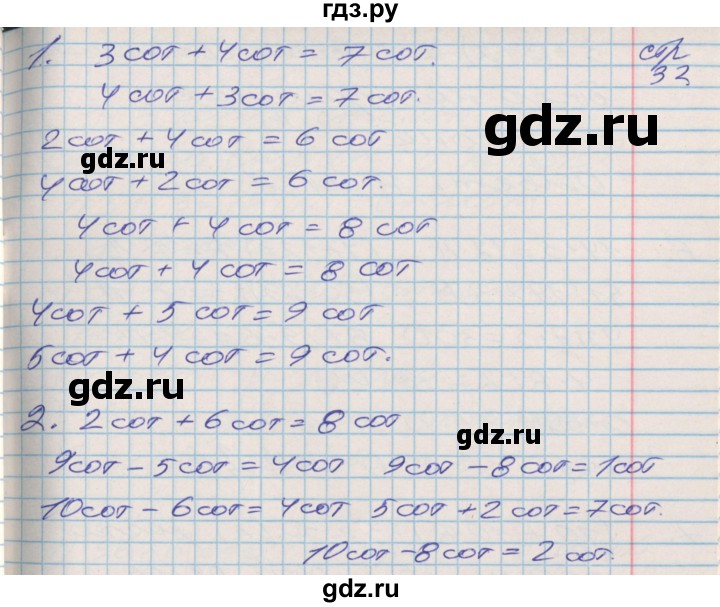 гдз.ру
1. 3сот + 4сот = 7сот.
стр 32
4сот + 3сот = 7сот.
2сот + 4сот = 6 сот
gdz.ru
gdz.ru
4сот + 2сот = 6 сот.
4сот + 4сот = 8 сот
4сот + 4сот = 8 сот
4сот + 5 сот = 9 сот
5сот + 4 сот = 9 сот.
gdz.ru
2. 2сот + 6сот = 8сот
gdz.ru
9сот - 5сот = 4сот 9сот - 8сот = 1сот
10сот - 6сот = 4сот 5сот + 2сот = 7сот.
10сот - 8сот = 2 сот.
gdz.ru